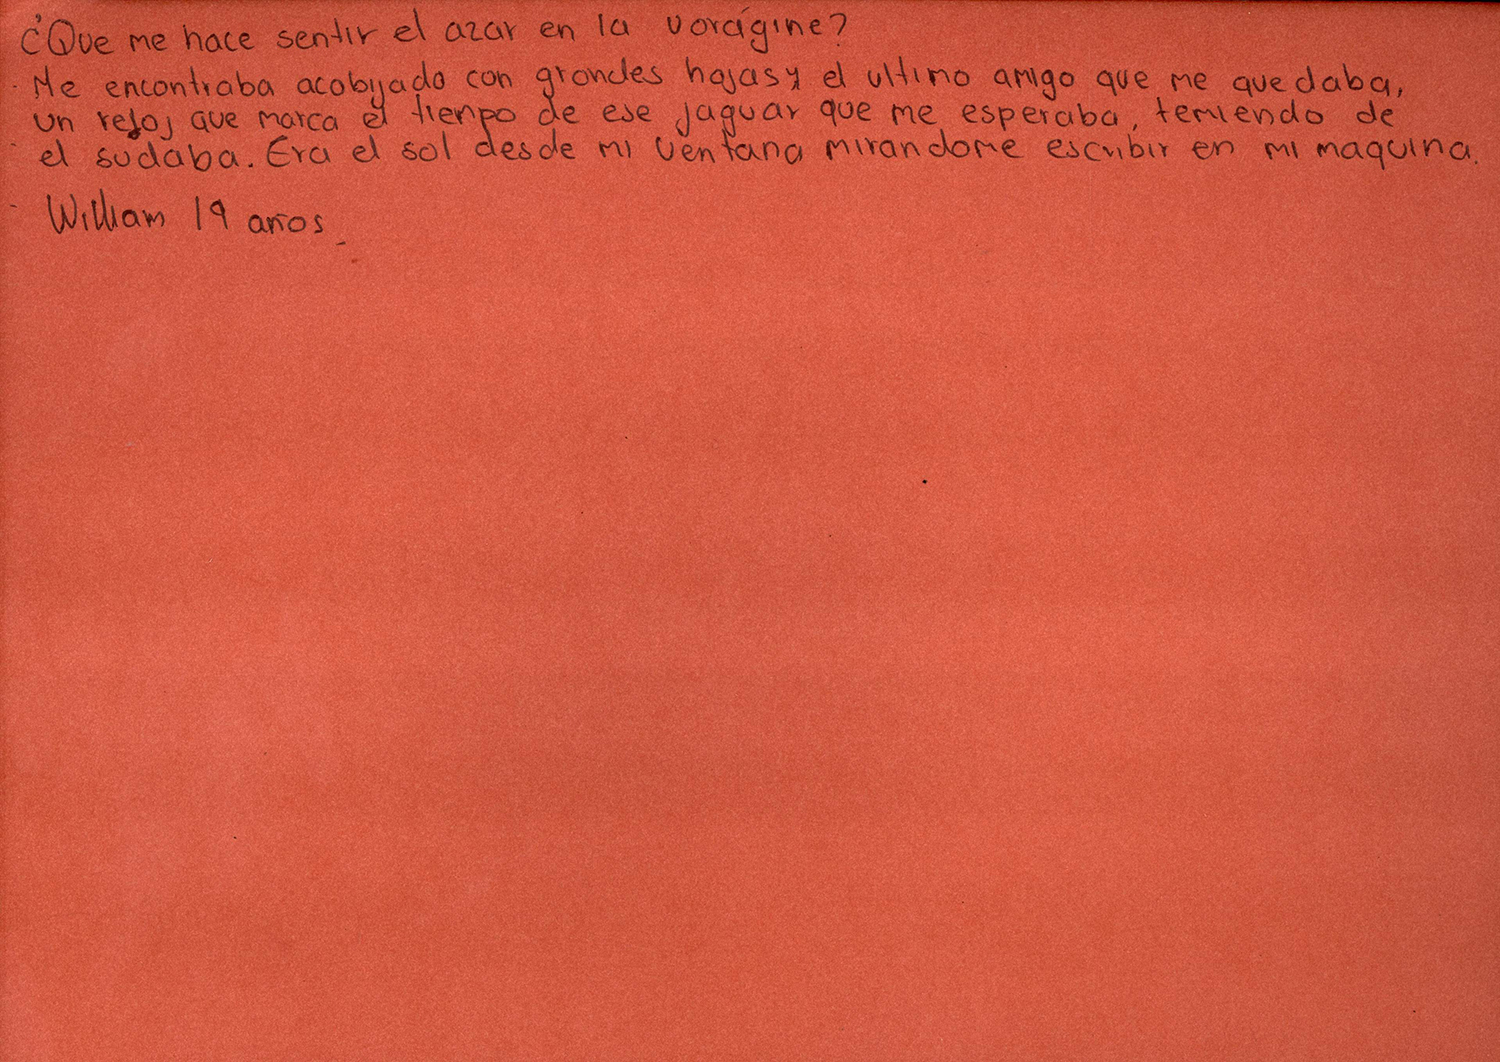 ¿Que me hace sentir el azar en la vorágine?
Me encontraba acobijado con grandes hojas y el ultimo amigo que me quedaba,
un reloj que marca el tiempo de ese jaguar que me esperaba, temiendo de
el sudaba. Era el sol desde mi ventana mirandome escribir en mi maquina.
William 19 años